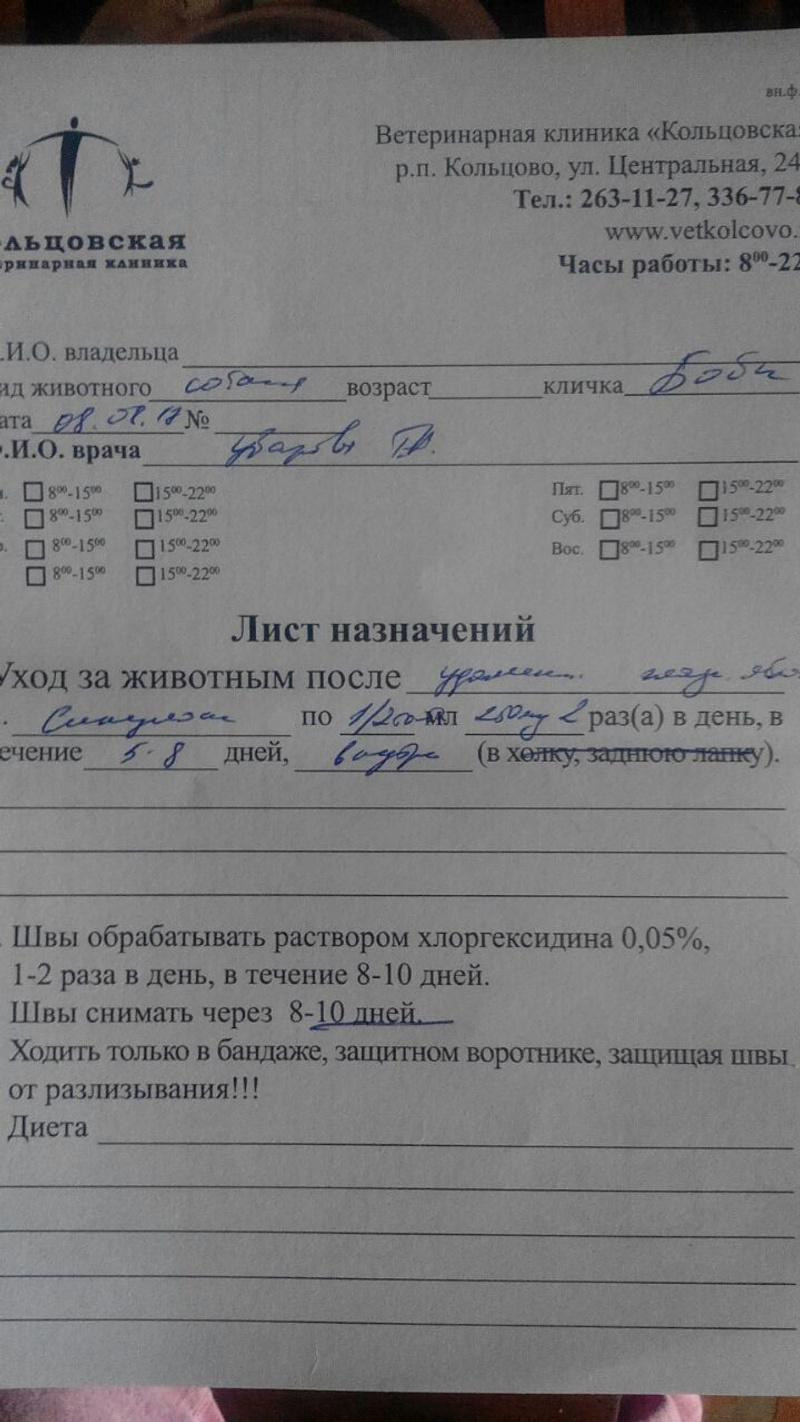 вн.ф.
Ветеринарная клиника «Кольцовска
р.п. Кольцово, ул. Центральная, 24
Тел.: 263-11-27, 336-77-8
www.vetkolcovo.
Часы работы: 8⁰⁰-22
льцовская
ринарная клиника
.И.О. владельца
ид животного собака возраст кличка
ата №
.И.О. врача
8⁰⁰-15⁰⁰ 15⁰⁰-22⁰⁰ Пят. 8⁰⁰-15⁰⁰ 15⁰⁰-22⁰⁰
8⁰⁰-15⁰⁰ 15⁰⁰-22⁰⁰ Суб. 8⁰⁰-15⁰⁰ 15⁰⁰-22⁰⁰
8⁰⁰-15⁰⁰ 15⁰⁰-22⁰⁰ Вос. 8⁰⁰-15⁰⁰ 15⁰⁰-22⁰⁰
8⁰⁰-15⁰⁰ 15⁰⁰-22⁰⁰
Лист назначений
Уход за животным после
. Синулокс по мл 250 мг 2 раз(а) в день, в
ечение 5-8 дней, внутрь (в холку, заднюю лапку).
Швы обрабатывать раствором хлоргексидина 0,05%,
1-2 раза в день, в течение 8-10 дней.
Швы снимать через 8-10 дней.
Ходить только в бандаже, защитном воротнике, защищая швы
от разлизывания!!!
Диета